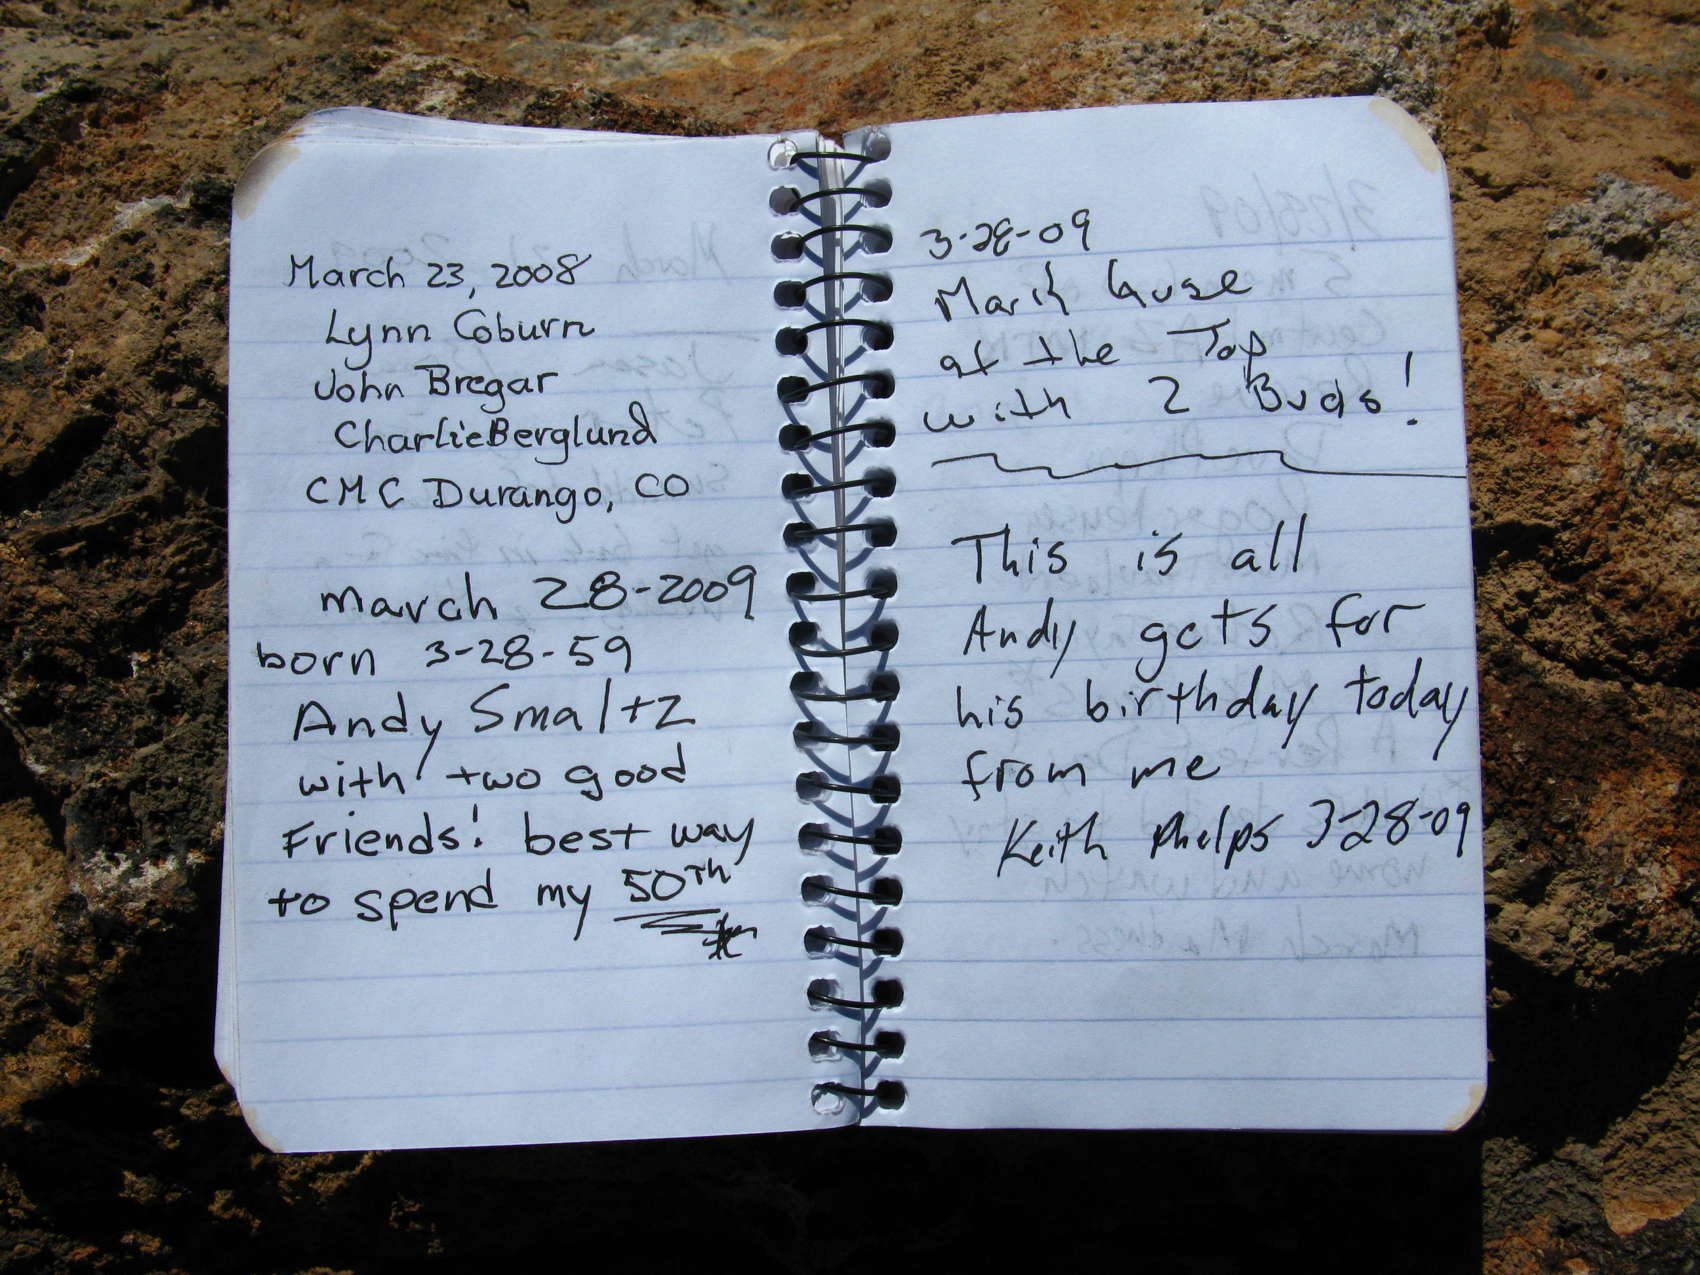 March 23, 2008
Lynn Coburn
John Bregar
Charlie Berglund
CMC Durango, CO
march 28-2009
born 3-28-59
Andy Smaltz
with two good
Friends! best way
to spend my 50TH
3-28-09
Mark
at the Top
with 2 Buds!
This is all
Andy gets for
his birthday today
from me
Keith Phelps 3-28-09